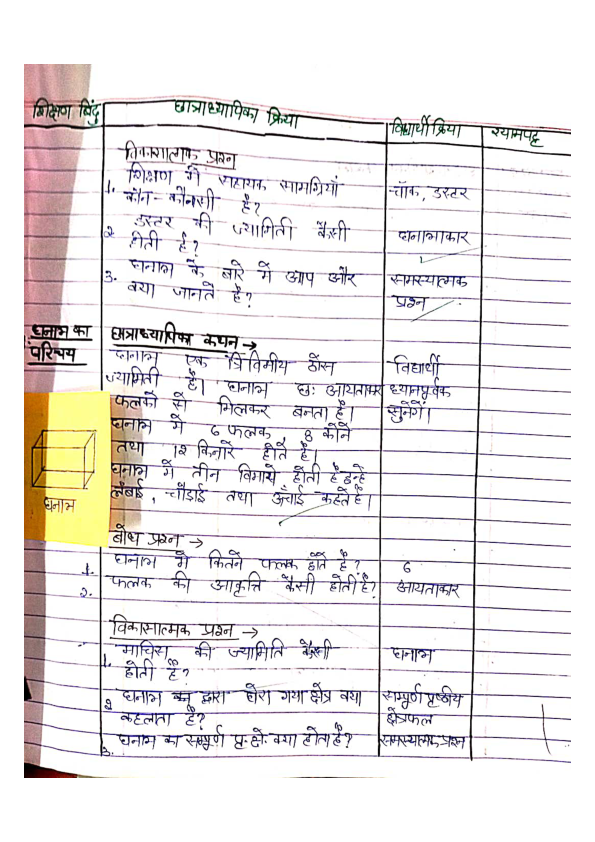 शिक्षण बिंदु
छात्राध्यापिका क्रिया
विद्यार्थी क्रिया
श्यामपट्ट
विकासात्मक प्रश्न
1. शिक्षण में सहायक सामग्रियां
कौन-कौनसी है?
चॉक, डस्टर
2 डस्टर की ज्यामिती कैसी
होती है?
घनाभाकार
3. घनाभ के बारे में आप और
क्या जानते है?
समस्यात्मक
प्रश्न
घनाभ का
परिचय
छात्राध्यापिका कथन →
घनाभ एक त्रिविमीय ठोस
ज्यामिती है। घनाभ छः आयताकार
फलकों से मिलकर बनता है।
घनाभ में 6 फलक 8 कोने
तथा 12 किनारे होते है।
घनाभ में तीन विमायें होती है इन्हें
लंबाई, चौड़ाई तथा ऊँचाई कहते है।
विद्यार्थी
ध्यानपूर्वक
सुनेगें।
घनाभ
बोध प्रश्न →
1. घनाभ में कितने फलक होते है?
6
2. फलक की आकृति कैसी होती है?
आयताकार
विकासात्मक प्रश्न →
1. माचिस की ज्यामिति कैसी
होती है?
घनाभ
2 घनाभ के द्वारा घेरा गया क्षेत्र क्या
कहलाता है?
सम्पूर्ण पृष्ठीय
क्षेत्रफल
3. घनाभ का सम्पूर्ण पृ. क्षे. क्या होता है?
समस्यात्मक प्रश्न